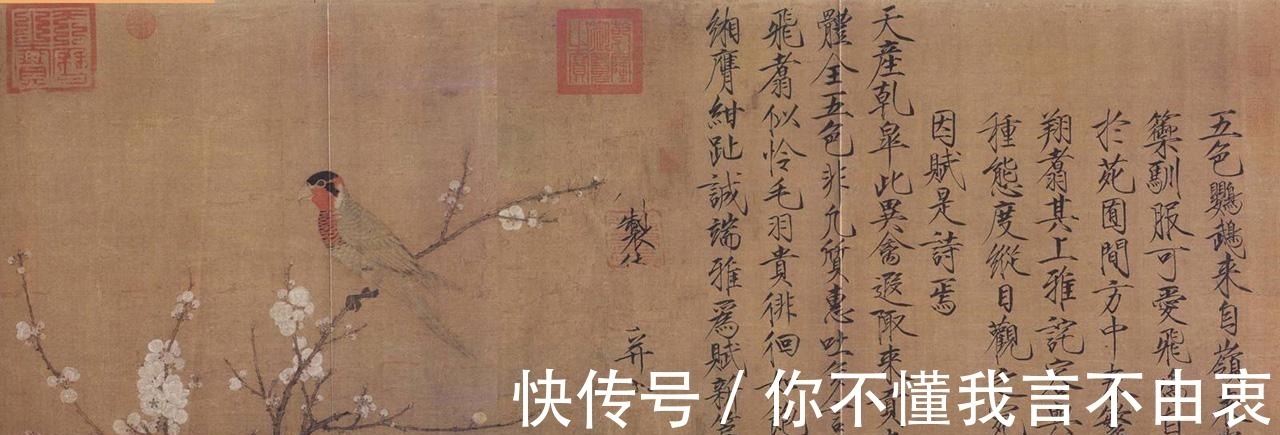 五色鸚鵡來自嶺
籞馴服可愛飛
於苑囿間方中
翔翥其上雅詫
種態度縱目觀
因賦是詩焉
天產乾皋此異禽遐陬來
體全五色非凡質惠吐
飛翥似憐毛羽貴徘徊
緗膺紺趾誠端雅爲賦新
製
并
快传号 / 你不懂我言不由衷